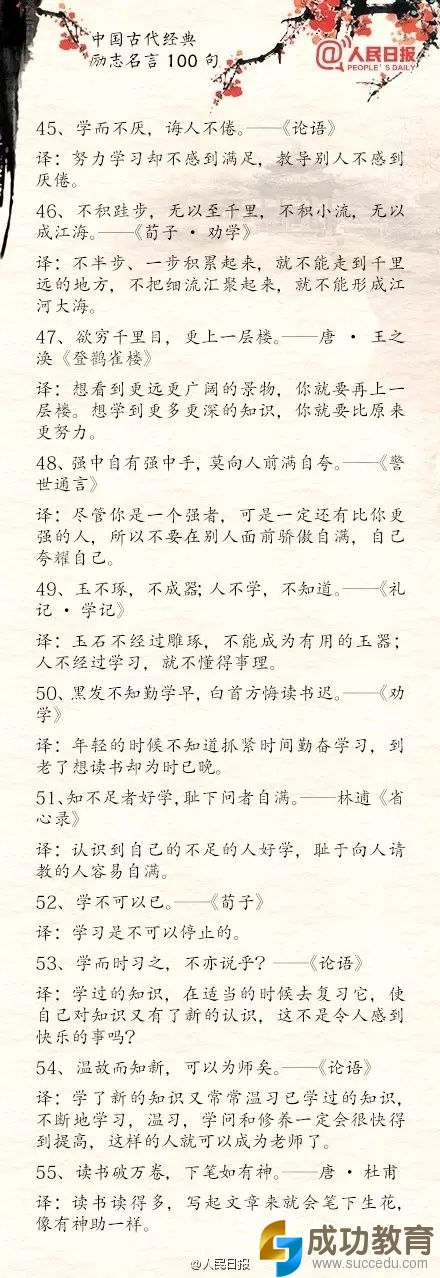 中国古代经典
励志名言100句
@人民日报
PEOPLE'S DAILY
45、学而不厌，诲人不倦。——《论语》
译：努力学习却不感到满足，教导别人不感到
厌倦。
46、不积跬步，无以至千里，不积小流，无以
成江海。——《荀子·劝学》
译：不半步、一步积累起来，就不能走到千里
远的地方，不把细流汇聚起来，就不能形成江
河大海。
47、欲穷千里目，更上一层楼。——唐·王之
涣《登鹳雀楼》
译：想看到更远更广阔的景物，你就要再上一
层楼。想学到更多更深的知识，你就要比原来
更努力。
48、强中自有强中手，莫向人前满自夸。——《警
世通言》
译：尽管你是一个强者，可是一定还有比你更
强的人，所以不要在别人面前骄傲自满，自己
夸耀自己。
49、玉不琢，不成器；人不学，不知道。——《礼
记·学记》
译：玉石不经过雕琢，不能成为有用的玉器；
人不经过学习，就不懂得事理。
50、黑发不知勤学早，白首方悔读书迟。——《劝
学》
译：年轻的时候不知道抓紧时间勤奋学习，到
老了想读书却为时已晚。
51、知不足者好学，耻下问者自满。——林逋《省
心录》
译：认识到自己的不足的人好学，耻于向人请
教的人容易自满。
52、学不可以已。——《荀子》
译：学习是不可以停止的。
53、学而时习之，不亦说乎？——《论语》
译：学过的知识，在适当的时候去复习它，使
自己对知识又有了新的认识，这不是令人感到
快乐的事吗?
54、温故而知新，可以为师矣。——《论语》
译：学了新的知识又常常温习已学过的知识，
不断地学习，温习，学问和修养一定会很快得
到提高，这样的人就可以成为老师了。
55、读书破万卷，下笔如有神。——唐·杜甫
译：读书读得多，写起文章来就会笔下生花，
像有神助一样。
@人民日报
成功教育
www.succedu.com